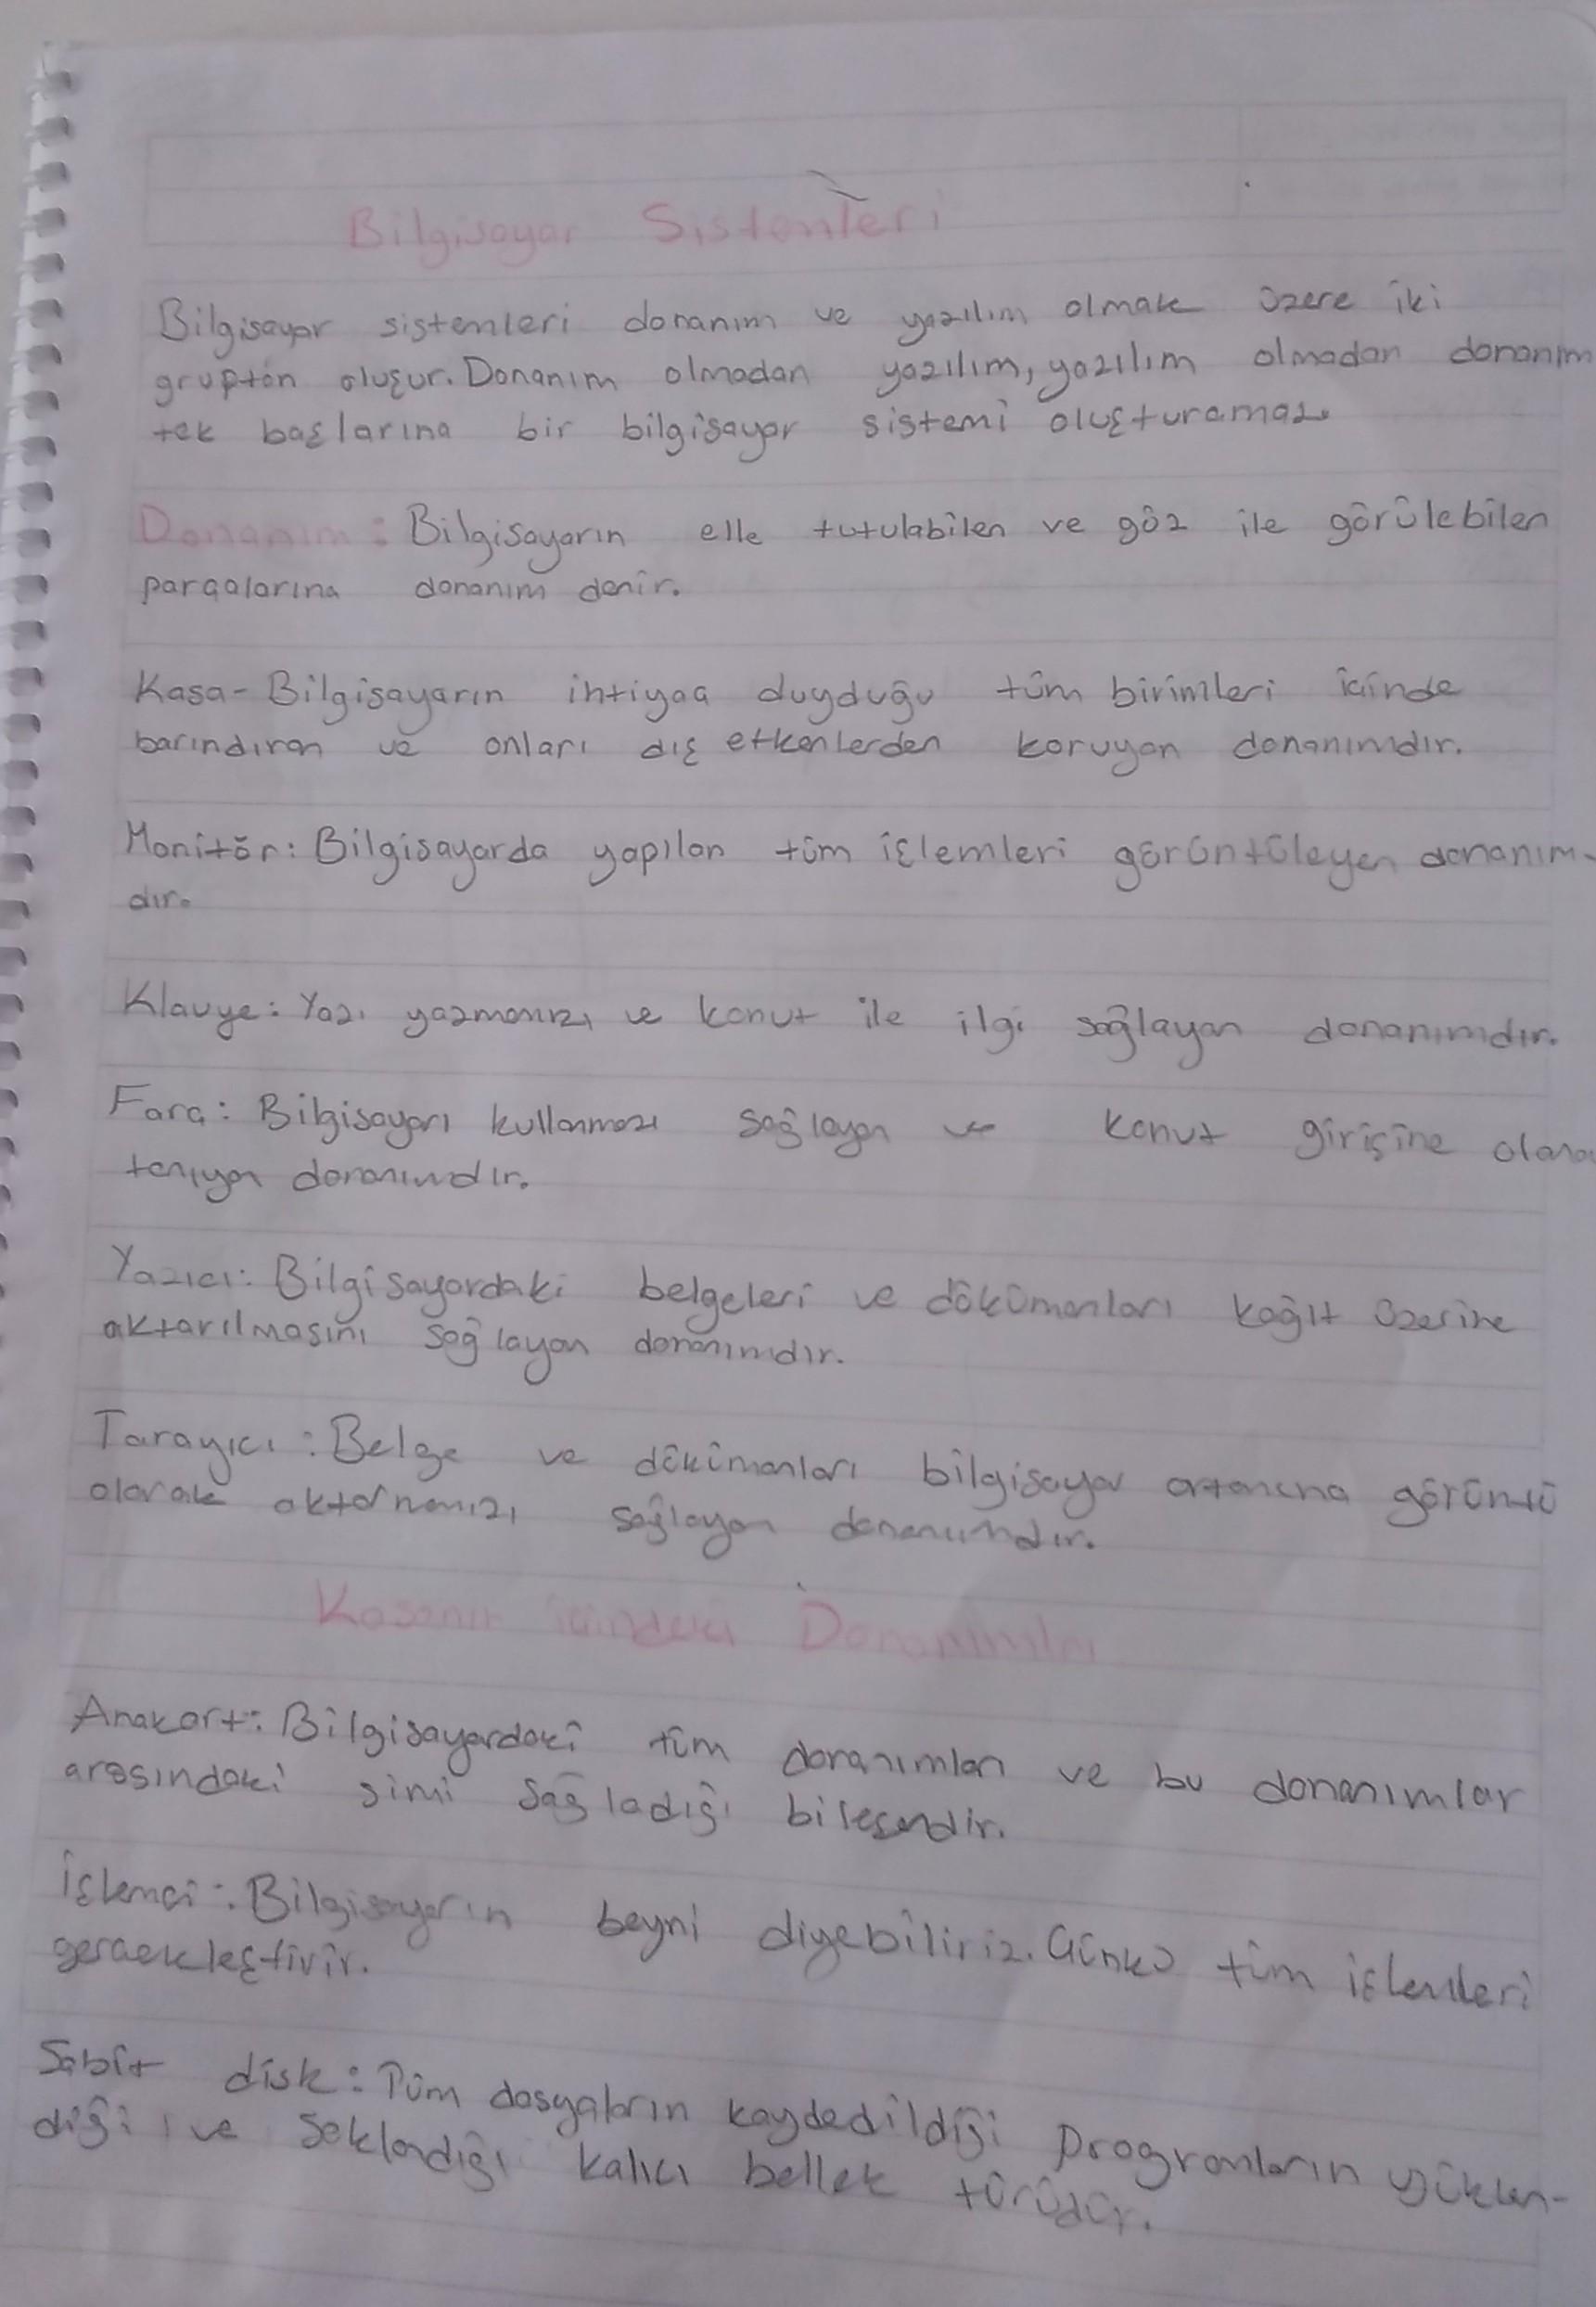 Bilgisayar Sistemleri
Bilgisayar sistemleri donanım ve yazılım olmak üzere iki
gruptan oluşur. Donanım olmadan yazılım, yazılım olmadan donanım
tek başlarına bir bilgisayar sistemi oluşturamaz.
Donanım: Bilgisayarın elle tutulabilen ve göz ile görülebilen
parçalarına donanım denir.
Kasa- Bilgisayarın ihtiyaç duyduğu tüm birimleri içinde
barındıran ve onları dış etkenlerden koruyan donanımdır.
Monitör: Bilgisayarda yapılan tüm işlemleri görüntüleyen donanım-
dır.
Klavye: Yazı yazmamızı ve komut ile ilgi sağlayan donanımdır.
Fare: Bilgisayarı kullanmazı sağlayan ve komut girişine olana
tanıyan donanımdır.
Yazıcı: Bilgisayardaki belgeleri ve dökümanları kağıt üzerine
aktarılmasını sağlayan donanımdır.
Tarayıcı: Belge ve dökümanları bilgisayar ortamına görüntü
olarak aktarmamızı sağlayan donanımdır.
Kasanın içindeki Donanımlar
Anakart: Bilgisayardaki tüm donanımları ve bu donanımlar
arasındaki sağladığı bileşendir.
İşlemci: Bilgisayarın beyni diyebiliriz. Çünkü tüm işlemleri
gerçekleştirir.
Sabit disk: Tüm dosyaların kaydedildiği programların yüklen-
diği ve saklandığı kalıcı bellek türüdür.